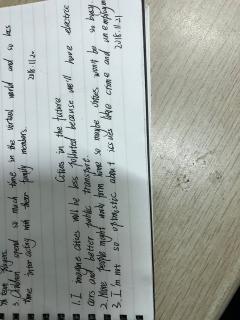 3. Children spend so much time in the virtual world and so less
time interacting with their family members.
2018.11.20
Cities in the future
1. I imagine cities will be less polluted because we'll have electric
cars and better public transport.
2. More people might work from home so maybe cities won't be so busy
3. I'm not so optimistic about issues like crime and unemployment
2018.11.21